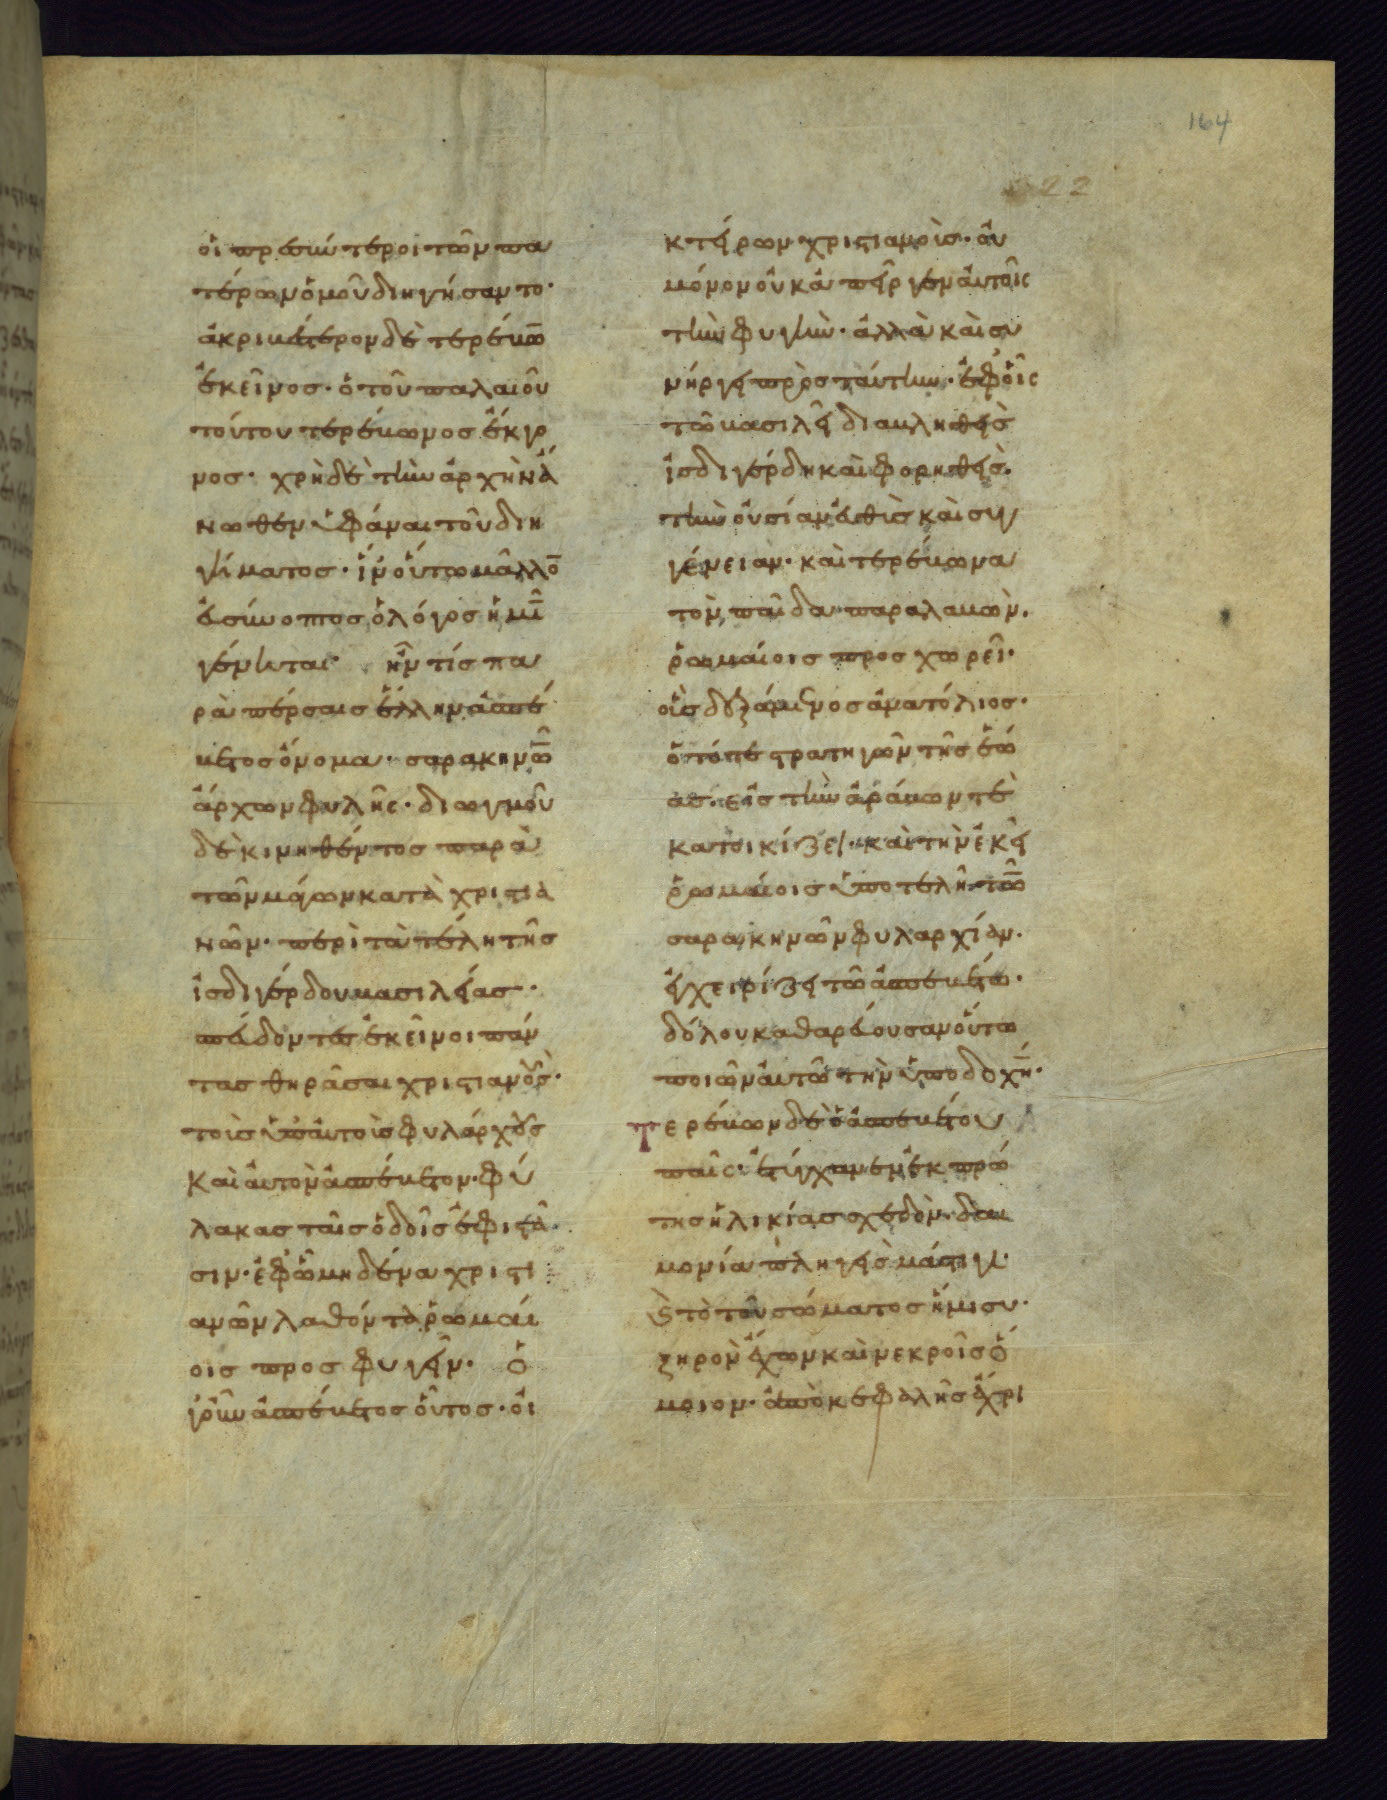 164
22
οἱ πρεσβύτεροι τῶν πα
τέρων ὁμοῦ διηγήσαντο·
ἀκριβέστερον δὲ τερέβω̅
ἐκεῖνος· ὁ τοῦ παλαιοῦ
τούτου τερέβωνος ἔκγο
νος· χρὴ δὲ τὴν ἀρχὴν ἄ
νωθεν ὑφάναι τοῦ διη
γήματος· ἵν οὕτω μᾶλλο̅
εὐσύνοπτος ὁ λόγος ἡμῖ̅
γένηται· ἦν τίς πα
ρὰ πέρσαις ἕλλην ἀσπέ
βετος ὄνομα· σαρακηνῶ̅
ἄρχων φυλῆς· διωγμοῦ
δὲ κινηθέντος παρὰ
τῶν μάγων κατὰ χριστια
νῶν· περὶ τὰ τέλη τῆς
ἰσδιγέρδου βασιλείας·
σπεύδοντες ἐκεῖνοι πάν
τας θηρᾶσαι χριστιανοὺς·
τοῖς ὑπ αὐτοῖς φυλάρχοις
καὶ αὐτὸν ἀσπέβετον· φύ
λακας ταῖς ὁδοῖς ἐφιστᾶ
σιν· ἐφ ὧ μηδένα χριστι
ανῶν λαθόντα ῥωμαί
οις προσφυγεῖν· ὁ
γοῦν ἀσπέβετος οὗτος· οἰ
κτείρων χριστιανοὺς· οὐ
μόνον οὐκ ἀπεῖργεν αὐτοῖς
τὴν φυγὴν· ἀλλὰ καὶ συ
νήργει πρὸς ταύτην· ἐφ οἷς
τῶ βασιλεῖ διαβληθεὶς
ἰσδιγέρδη καὶ φορηθεὶς.
τὴν οὐσίαν εὐθὺς καὶ συγ
γένειαν· καὶ τερέβωνα
τὸν παῖδα παραλαβὼν.
ῥωμαίοις προσχωρεῖ·
οὓς δεξάμενος ἀνατόλιος·
ὁ τότε στρατηγῶν τῆς ἑώ
ας. εἰς τὴν ἀράβων τε
κατοικίζει· καὶ τὴν ἐκεῖ
ῥωμαίοις ὑποτελῆ τῶ̅
σαρακηνῶν φυλαρχίαν·
ἐγχειρίζει τῶ ἀσπεβέτω·
δόλου καθαρεύουσαν οὕτω
ποιῶν αὐτῶ τὴν ὑποδοχή̅·
Τερέβων δὲ ὁ ἀσπεβέτου
παῖς· ἐτύγχανεν ἐκ πρώ
της ἡλικίας σχεδὸν δαι
μονία πληγεὶς μάστιγι·
καὶ τὸ τοῦ σώματος ἥμισυ·
ξηρὸν ἔχων καὶ νεκροῖς ὅ
μοιον· ἀπὸ κεφαλῆς ἄχρι